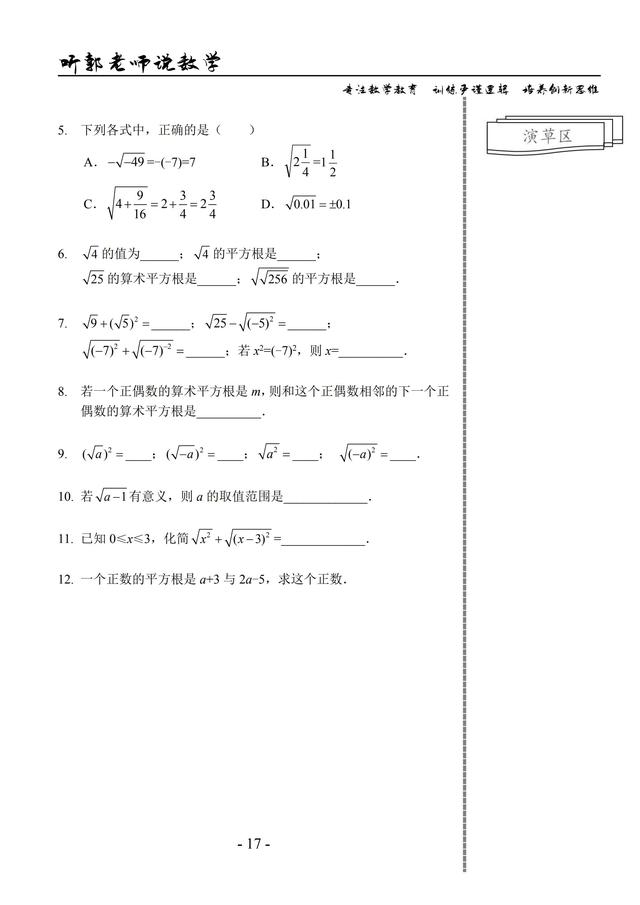 听郭老师说数学
专注数学教育 训练严谨逻辑 培养创新思维
演草区
5. 下列各式中，正确的是（ ）
A. -√-49=-(-7)=7 B. √2 1/4=1 1/2
C. √4+9/16=2+3/4=2 3/4 D. √0.01=±0.1
6. √4的值为______；√4的平方根是______；
√25的算术平方根是______；√√256的平方根是______．
7. √9+(√5)²=______；√25-√(-5)²=______；
√(-7)²+√(-7)⁻²=______；若x²=(-7)²，则x=__________．
8. 若一个正偶数的算术平方根是m，则和这个正偶数相邻的下一个正
偶数的算术平方根是__________．
9. (√a)²=____；(√-a)²=____；√a²=____；√(-a)²=____．
10. 若√a-1有意义，则a的取值范围是_____________．
11. 已知0≤x≤3，化简√x²+√(x-3)²=_____________．
12. 一个正数的平方根是a+3与2a-5，求这个正数．
- 17 -